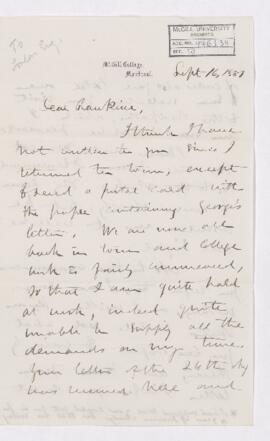 To
McGILL UNIVERSITY
ARCHIVES
ACC. NO.
REF.
McGill College,
Montreal.
Sept 16, 1881
Dear Hawkins,
I think I have
not written to you since I
returned to town, except
to send a postal card with
the paper containing George's
letter. We are now all
back in town and College
work is fairly commenced,
so that I am quite hard
at work, indeed quite
unable to supply all the
demands on my time.
Your letter of the 26th
was received here and